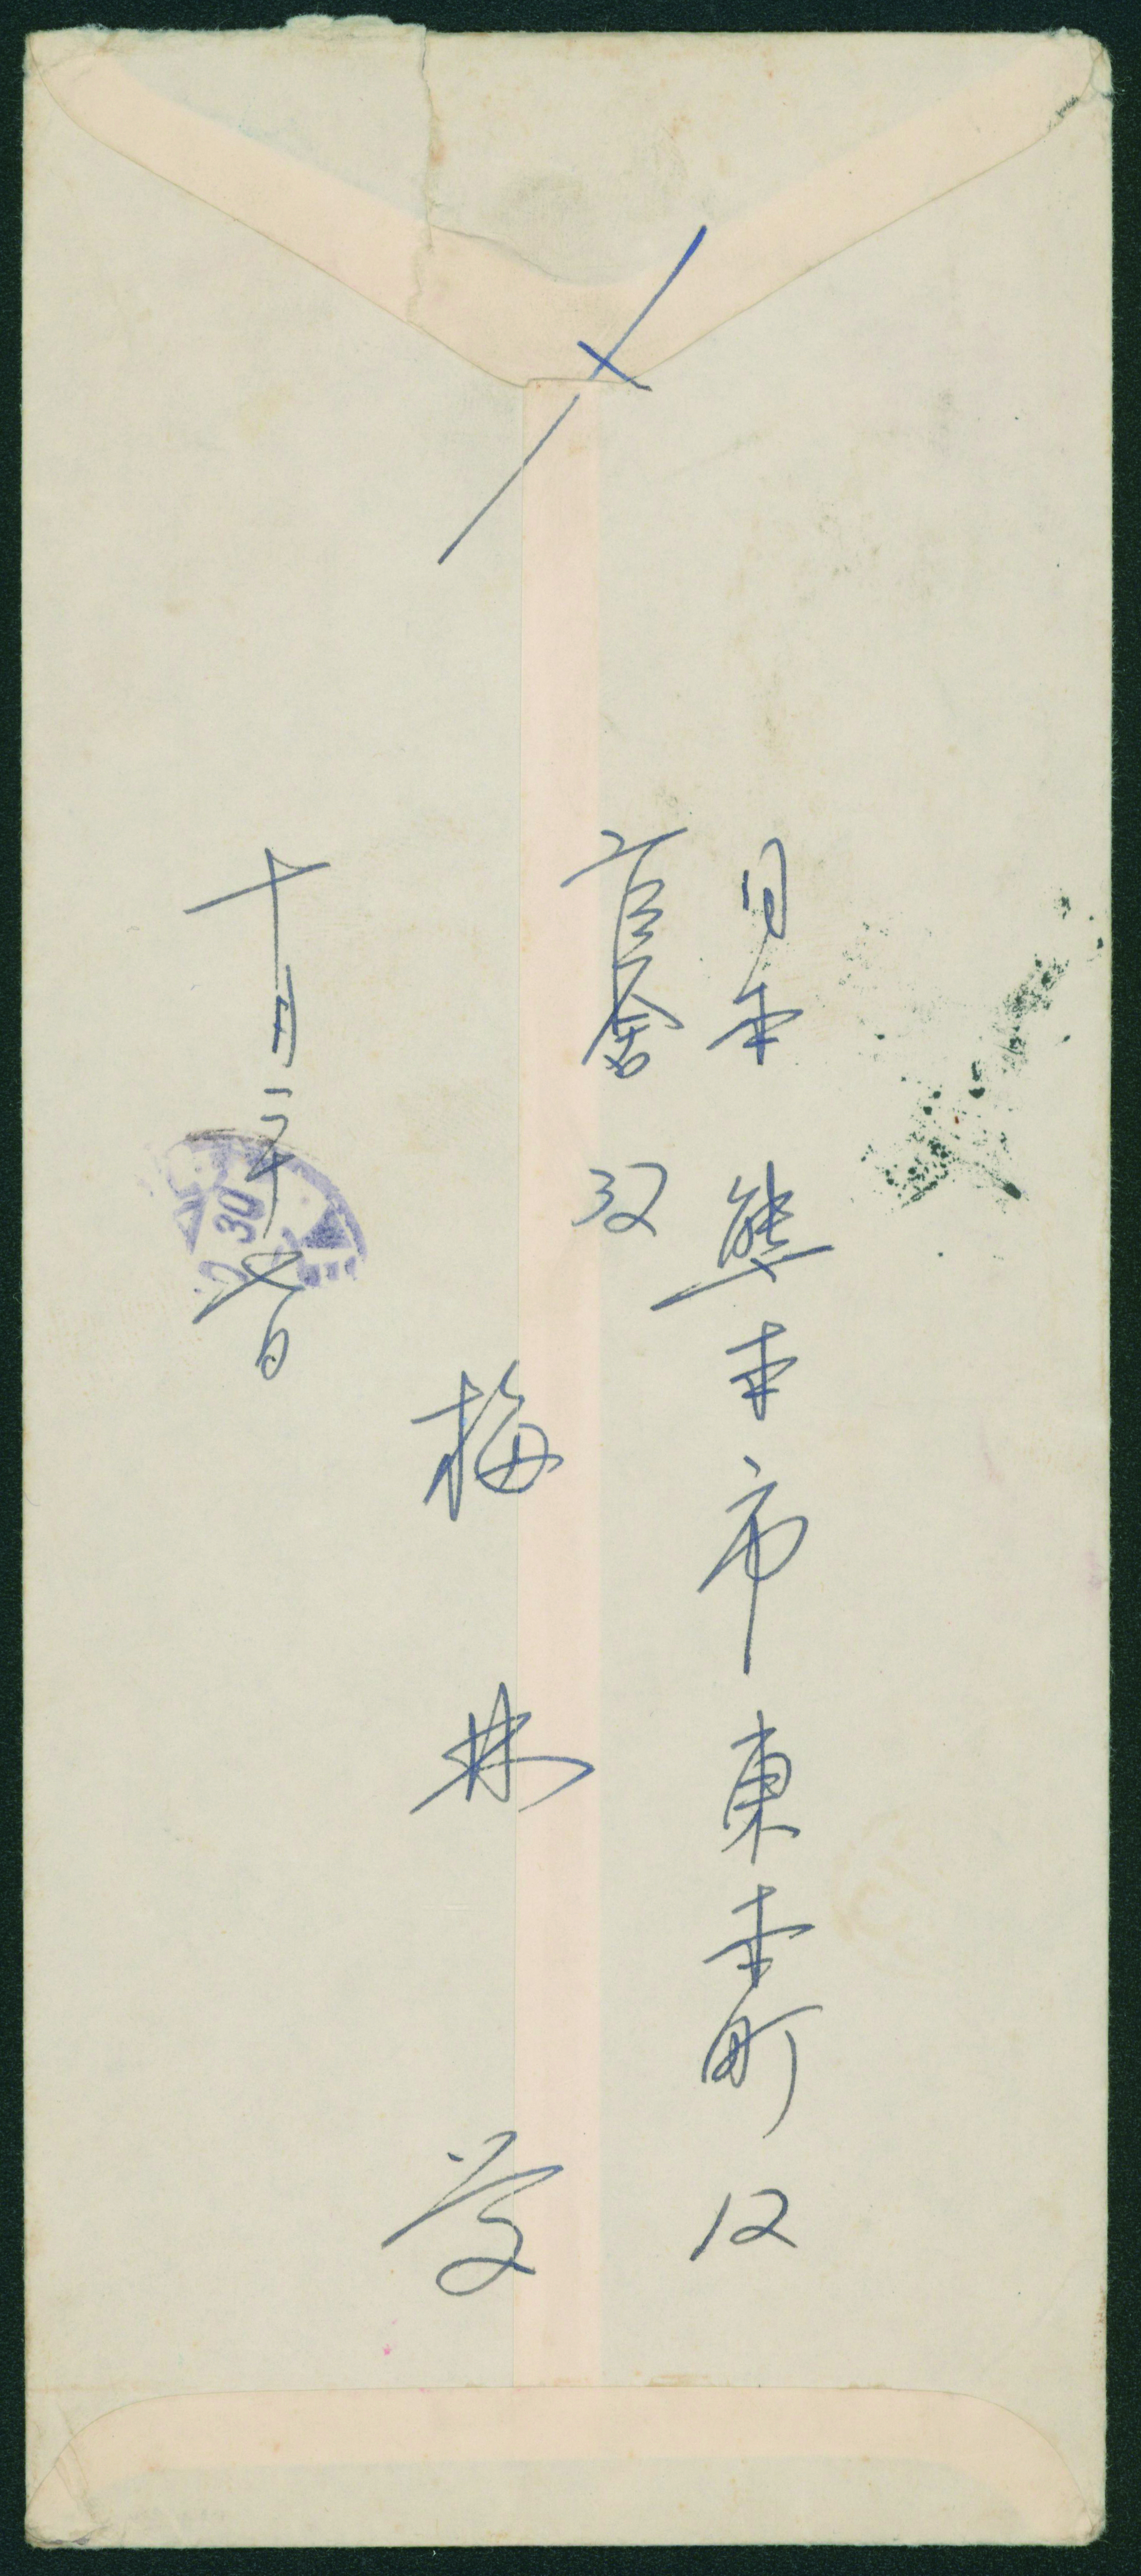 〆
日本 熊本市東本町12
官舎 32
梅林
十月二十七日
30